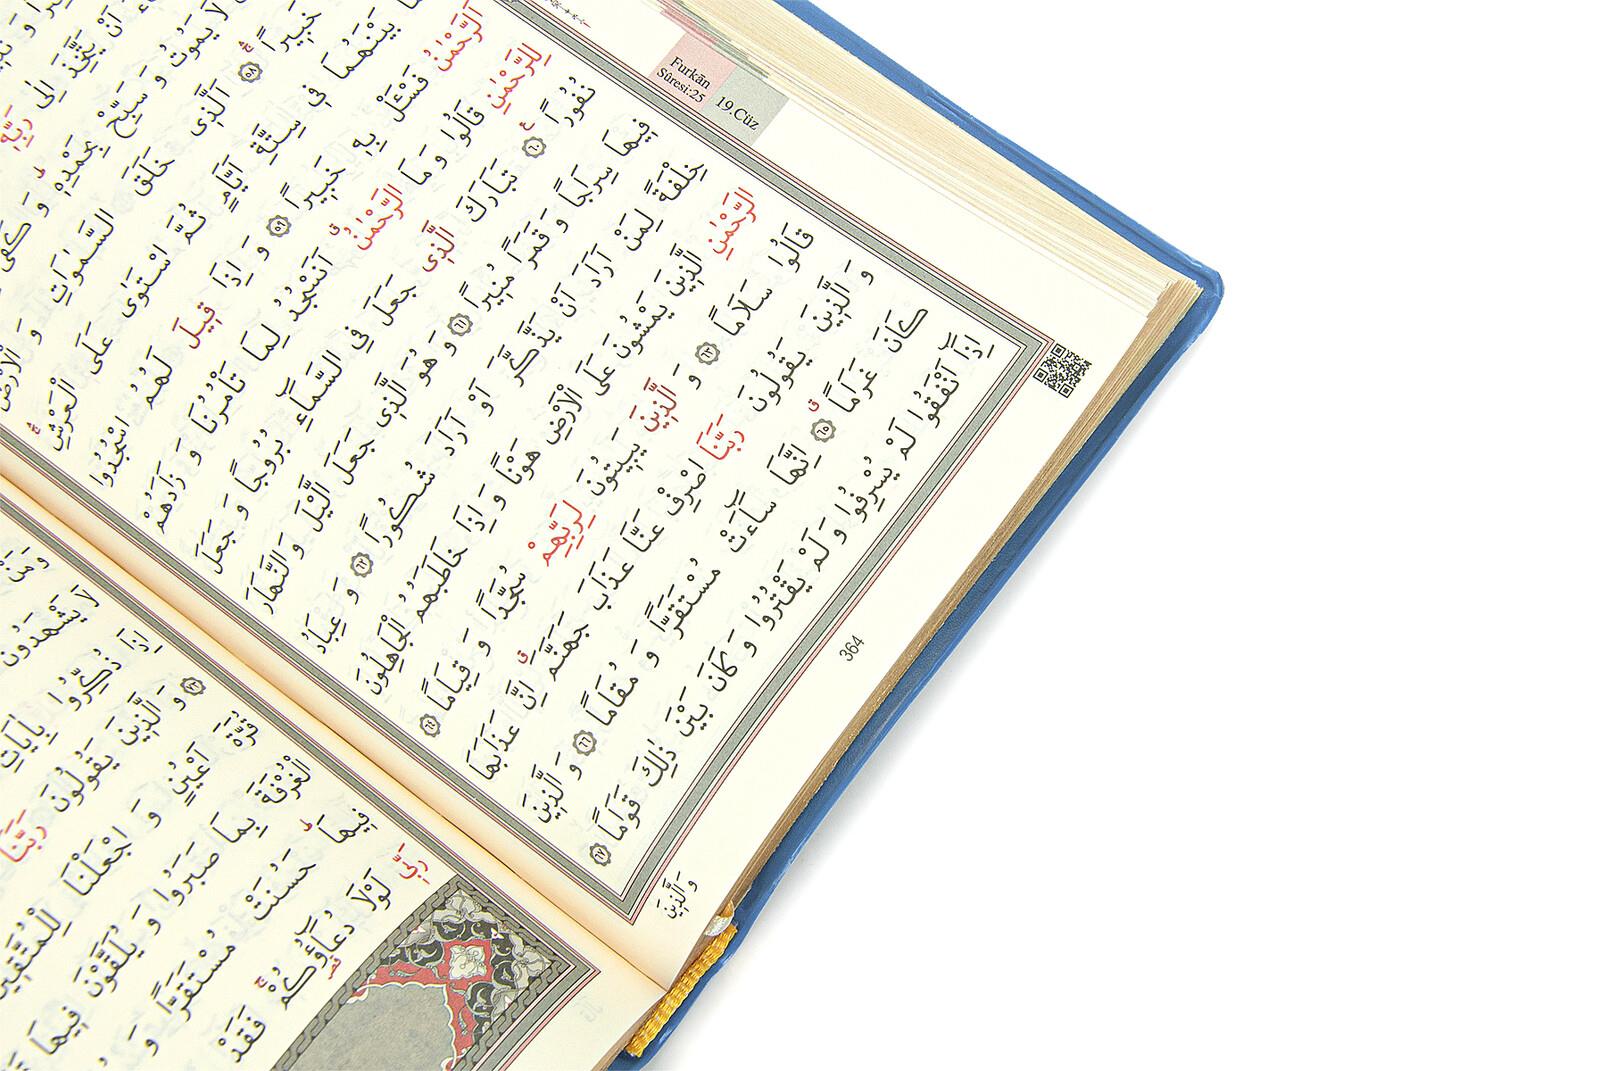 Furkān
Sûresi:25
19.Cüz
اَنْ يَتَّخِذَ اِلٰى رَبِّهٖ
لَا يَمُوتُ وَ سَبِّحْ بِحَمْدِهٖ وَ كَفٰى
خَبِيراً ﴿٥٨﴾ اَلَّذِى خَلَقَ السَّمٰوَاتِ وَ الْاَرْضَ
بَيْنَهُمَا فِى سِتَّةِ اَيَّامٍ ثُمَّ اسْتَوٰى عَلَى الْعَرْشِ
اَلرَّحْمٰنُ فَسْـَٔلْ بِهٖ خَبِيراً ﴿٥٩﴾ وَ اِذَا قِيلَ لَهُمُ اسْجُدُوا
لِلرَّحْمٰنِ قَالُوا وَ مَا الرَّحْمٰنُ اَنَسْجُدُ لِمَا تَاْمُرُنَا وَ زَادَهُمْ
نُفُوراً ﴿٦٠﴾ تَبَارَكَ الَّذِى جَعَلَ فِى السَّمَٓاءِ بُرُوجاً وَ جَعَلَ
فِيهَا سِرَاجاً وَ قَمَراً مُنِيراً ﴿٦١﴾ وَ هُوَ الَّذِى جَعَلَ الَّيْلَ وَ النَّهَارَ
خِلْفَةً لِمَنْ اَرَادَ اَنْ يَذَّكَّرَ اَوْ اَرَادَ شُكُوراً ﴿٦٢﴾ وَ عِبَادُ
الرَّحْمٰنِ الَّذِينَ يَمْشُونَ عَلَى الْاَرْضِ هَوْناً وَ اِذَا خَاطَبَهُمُ الْجَاهِلُونَ
قَالُوا سَلَاماً ﴿٦٣﴾ وَ الَّذِينَ يَبِيتُونَ لِرَبِّهِمْ سُجَّداً وَ قِيَاماً ﴿٦٤﴾
وَ الَّذِينَ يَقُولُونَ رَبَّنَا اصْرِفْ عَنَّا عَذَابَ جَهَنَّمَ اِنَّ عَذَابَهَا
كَانَ غَرَاماً ﴿٦٥﴾ اِنَّهَا سَٓاءَتْ مُسْتَقَرّاً وَ مُقَاماً ﴿٦٦﴾ وَ الَّذِينَ
اِذَٓا اَنْفَقُوا لَمْ يُسْرِفُوا وَ لَمْ يَقْتُرُوا وَ كَانَ بَيْنَ ذٰلِكَ قَوَاماً ﴿٦٧﴾
وَ الَّذِينَ
364
وَ مَنْ
لَا يَشْهَدُونَ
اِذَا ذُكِّرُوا بِاٰيَاتِ
﴿٧٣﴾ وَ الَّذِينَ يَقُولُونَ رَبَّنَا
قُرَّةَ اَعْيُنٍ وَ اجْعَلْنَا لِلْمُتَّقِينَ
الْغُرْفَةَ بِمَا صَبَرُوا وَ يُلَقَّوْنَ فِيهَا
فِيهَا حَسُنَتْ مُسْتَقَرّاً وَ
رَبِّى لَوْلَا دُعَٓاؤُكُمْ فَقَدْ